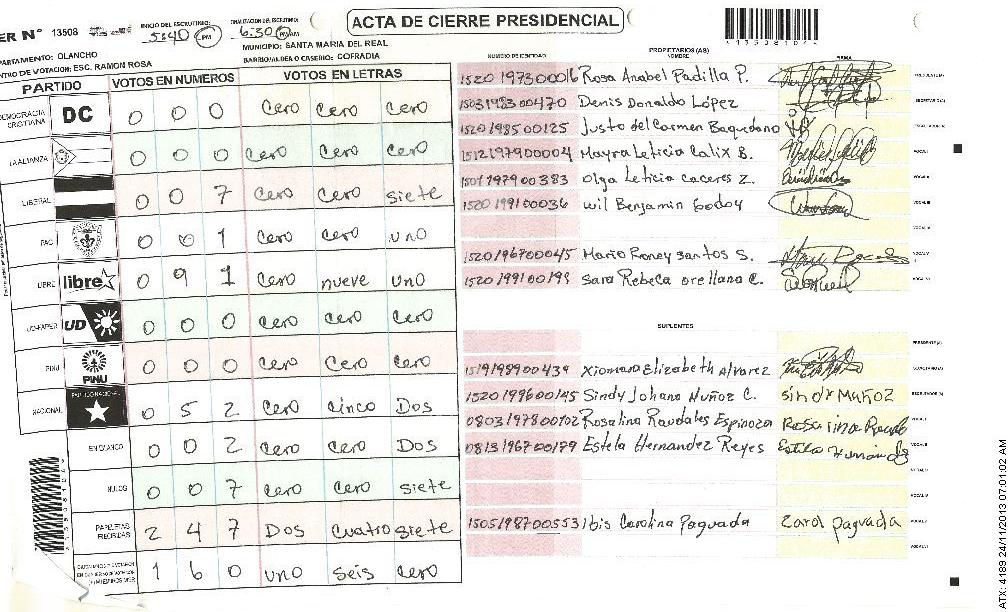 ACTA DE CIERRE PRESIDENCIAL
ER N° 13508
INICIO DEL ESCRUTINIO: 5:40 PM
FINALIZACION DEL ESCRUTINIO: 6:30 PM
DEPARTAMENTO: OLANCHO
MUNICIPIO: SANTA MARIA DEL REAL
CENTRO DE VOTACION: ESC. RAMON ROSA
BARRIO/ALDEA O CASERIO: COFRADIA
PARTIDO VOTOS EN NUMEROS VOTOS EN LETRAS
DEMOCRACIA CRISTIANA DC 0 0 0 cero cero cero
LA ALIANZA 0 0 0 cero cero cero
LIBERAL 0 0 7 cero cero siete
PAC 0 0 1 cero cero uno
LIBRE libre 0 9 1 cero nueve uno
UD-FAPER UD 0 0 0 cero cero cero
PINU PINU 0 0 0 cero cero cero
NACIONAL PARTIDO NACIONAL 0 5 2 cero cinco Dos
EN BLANCO 0 0 2 cero cero Dos
NULOS 0 0 7 cero cero siete
PAPELETAS RECIBIDAS 2 4 7 Dos cuatro siete
1 6 0 uno seis cero
PROPIETARIOS (AS)
NUMERO DE IDENTIDAD NOMBRE FIRMA
1520 1973 00016 Rosa Anabel Padilla P.
1503 1983 00470 Denis Donaldo López
1520 1985 00125 Justo del Carmen Baquedano
1512 1979 00004 Mayra Leticia Calix B.
1501 1979 00383 Olga Leticia Caceres Z.
1520 1991 00036 Wil Benjamin Godoy
1520 1967 00045 Mario Roney Santos S.
1520 1991 00199 Sara Rebeca Orellana C.
SUPLENTES
1519 1989 00439 Xiomara Elizabeth Alvarez
1520 1996 00145 Sindy Johana Nuñoz C. sindy Muñoz
0803 1978 00102 Rosalina Raudales Espinoza
0813 1967 00179 Estela Hernandez Reyes
1505 1987 00553 Ibis Carolina Paguada Carol paguada
ATX: 4189 24/11/2013 07:01:02 AM